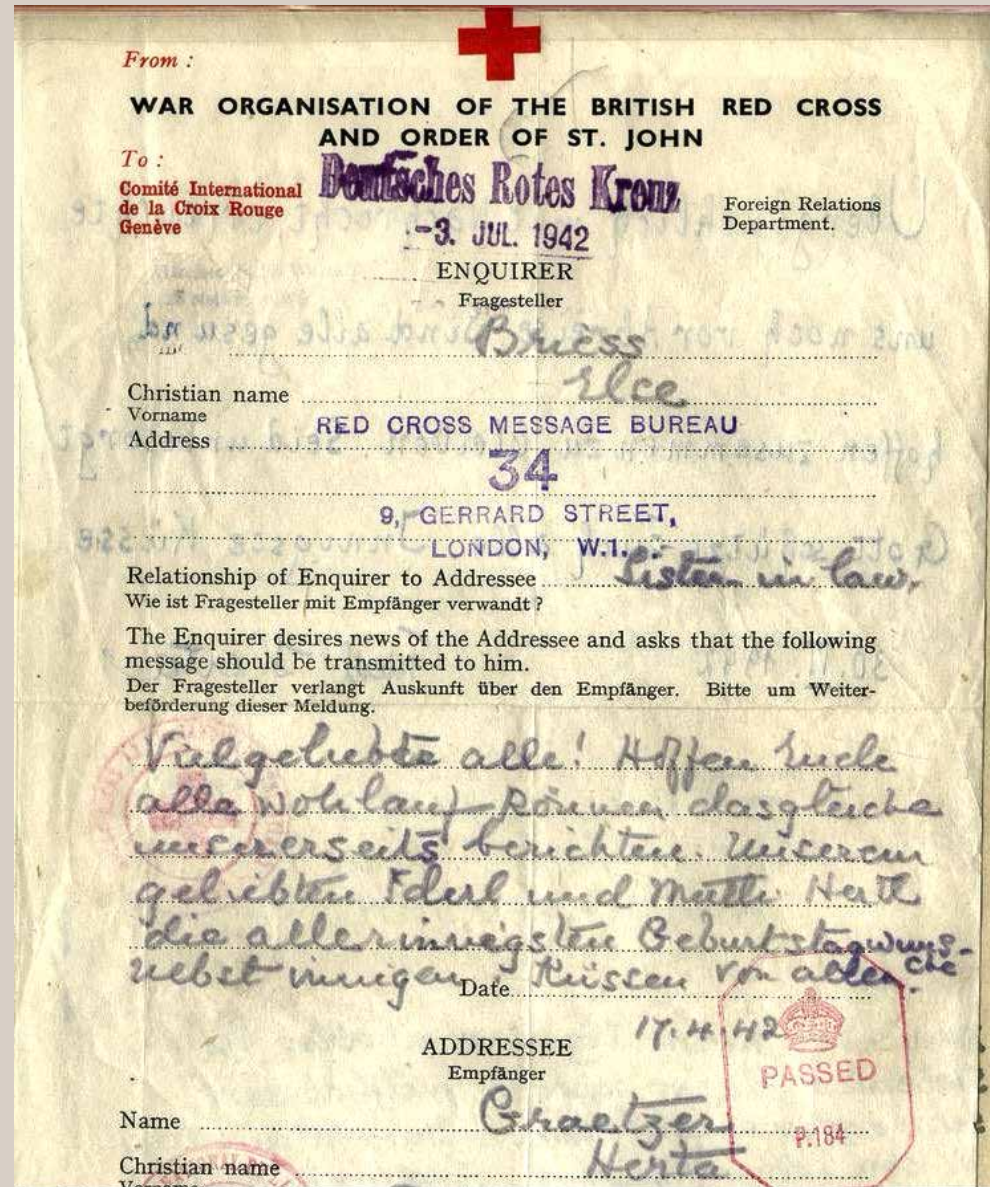 From :
WAR ORGANISATION OF THE BRITISH RED CROSS
AND ORDER OF ST. JOHN
To :
Comité International
de la Croix Rouge
Genève
Deutsches Rotes Kreuz
-3. JUL. 1942
Foreign Relations
Department.
ENQUIRER
Fragesteller
Briess
Christian name Elce
Vorname
Address RED CROSS MESSAGE BUREAU
34
9, GERRARD STREET,
LONDON, W.1.
Relationship of Enquirer to Addressee Sister in law.
Wie ist Fragesteller mit Empfänger verwandt ?
The Enquirer desires news of the Addressee and asks that the following
message should be transmitted to him.
Der Fragesteller verlangt Auskunft über den Empfänger. Bitte um Weiter-
beförderung dieser Meldung.
Vielgeliebte alle! Hoffen Euch
alle wohlauf können dasgleiche
unsererseits berichten. Unserem
geliebten und Mutti Herth
die allerinnigsten Geburtstagwüns-
che
nebst innigen Küssen von allen.
Date
17.4.42
ADDRESSEE
Empfänger
PASSED
P.184
Name Graetzer
Christian name Herta
Vorname